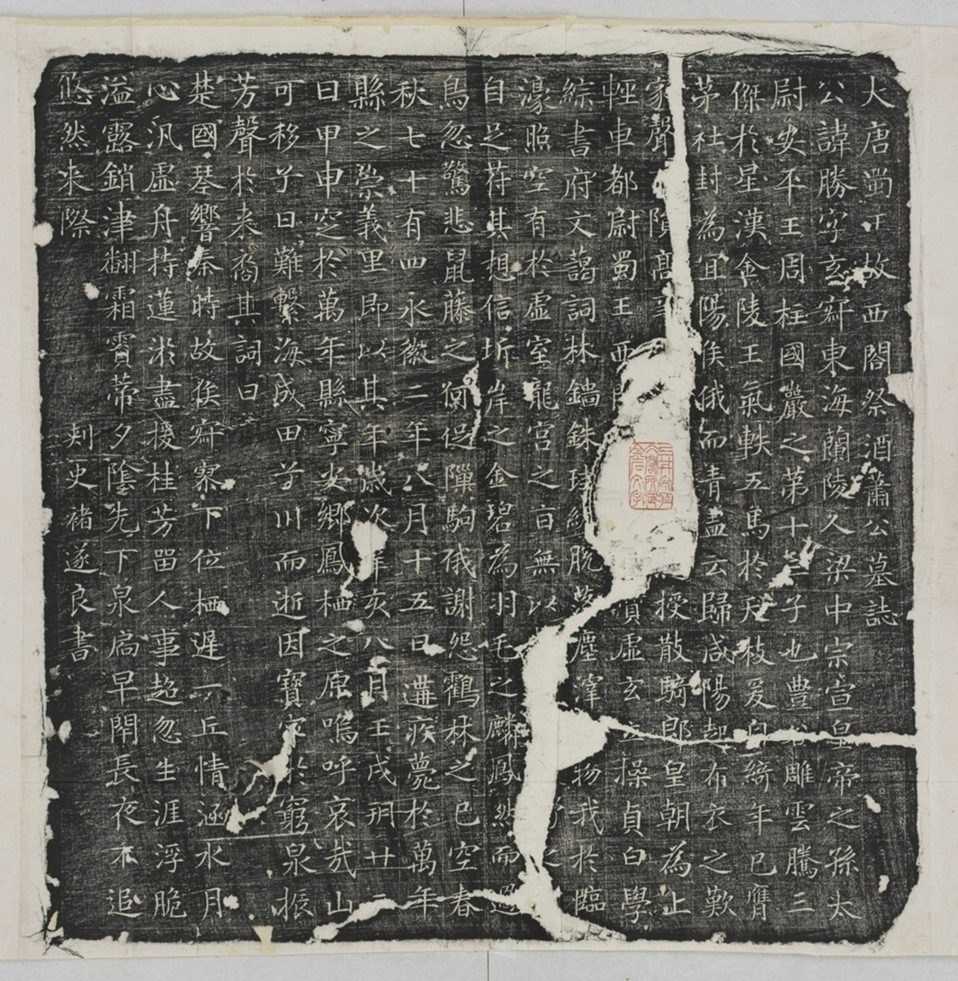 大唐蜀王故西閤祭酒蕭公墓誌
公諱勝字玄寂東海蘭陵人梁中宗宣皇帝之孫太
尉安平王周柱國巖之第十三子也豊谷雕雲騰三
傑於星漢金陵王氣軼五馬於天枝爰自綺年已膺
茅社封為宜陽侯俄而青蓋云歸咸陽起布衣之歎
家聲 高 授散騎郎皇朝為上
輕車都尉蜀王西 虛玄 操貞白學
綜書府文藹詞林鏘銖 脫 塵滓 物我於臨
濠照空有於虛室龍宮之 無以 之
自足苻其想信圻岸之金碧為羽毛之麟鳳然而過
鳥忽驚悲鼠藤之 促隟駒俄謝怨鸖林之已空春
秋七十有四永徽二年八月十五日遘疾薨於萬年
縣之崇義里即以其年歲次辛亥八月壬戌朔廿三
日甲申窆於萬年縣寧安鄉鳳栖之原嗚呼哀哉山
可移兮日難繫海成田兮川而逝因寶 於窮泉振
芳聲於来裔其詞曰
楚國琴響秦時故侯寂寥下位栖遲一丘情涵水月
心汎虛舟持蓮淤盡援桂芳畱人事超忽生涯浮脆
溢露銷津翻霜賓蒂夕陰先下泉扃早閇長夜不追
悠然来際 刾史褚遂良書